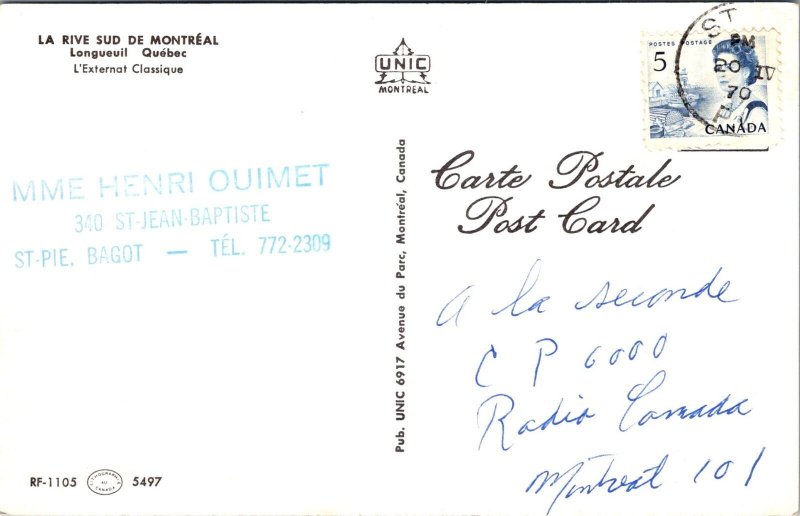 LA RIVE SUD DE MONTRÉAL
Longueuil Québec
L'Externat Classique
UNIC
MONTREAL
POSTES POSTAGE
5
CANADA
ST
PM
20 IV
70
MME HENRI OUIMET
340 ST-JEAN-BAPTISTE
ST-PIE, BAGOT — TÉL. 772-2309
Pub. UNIC 6917 Avenue du Parc, Montréal, Canada
Carte Postale
Post Card
A la seconde
C P 6000
Radio Canada
Montreal 101
RF-1105
LITHOGRAPHIE
AU
CANADA
5497